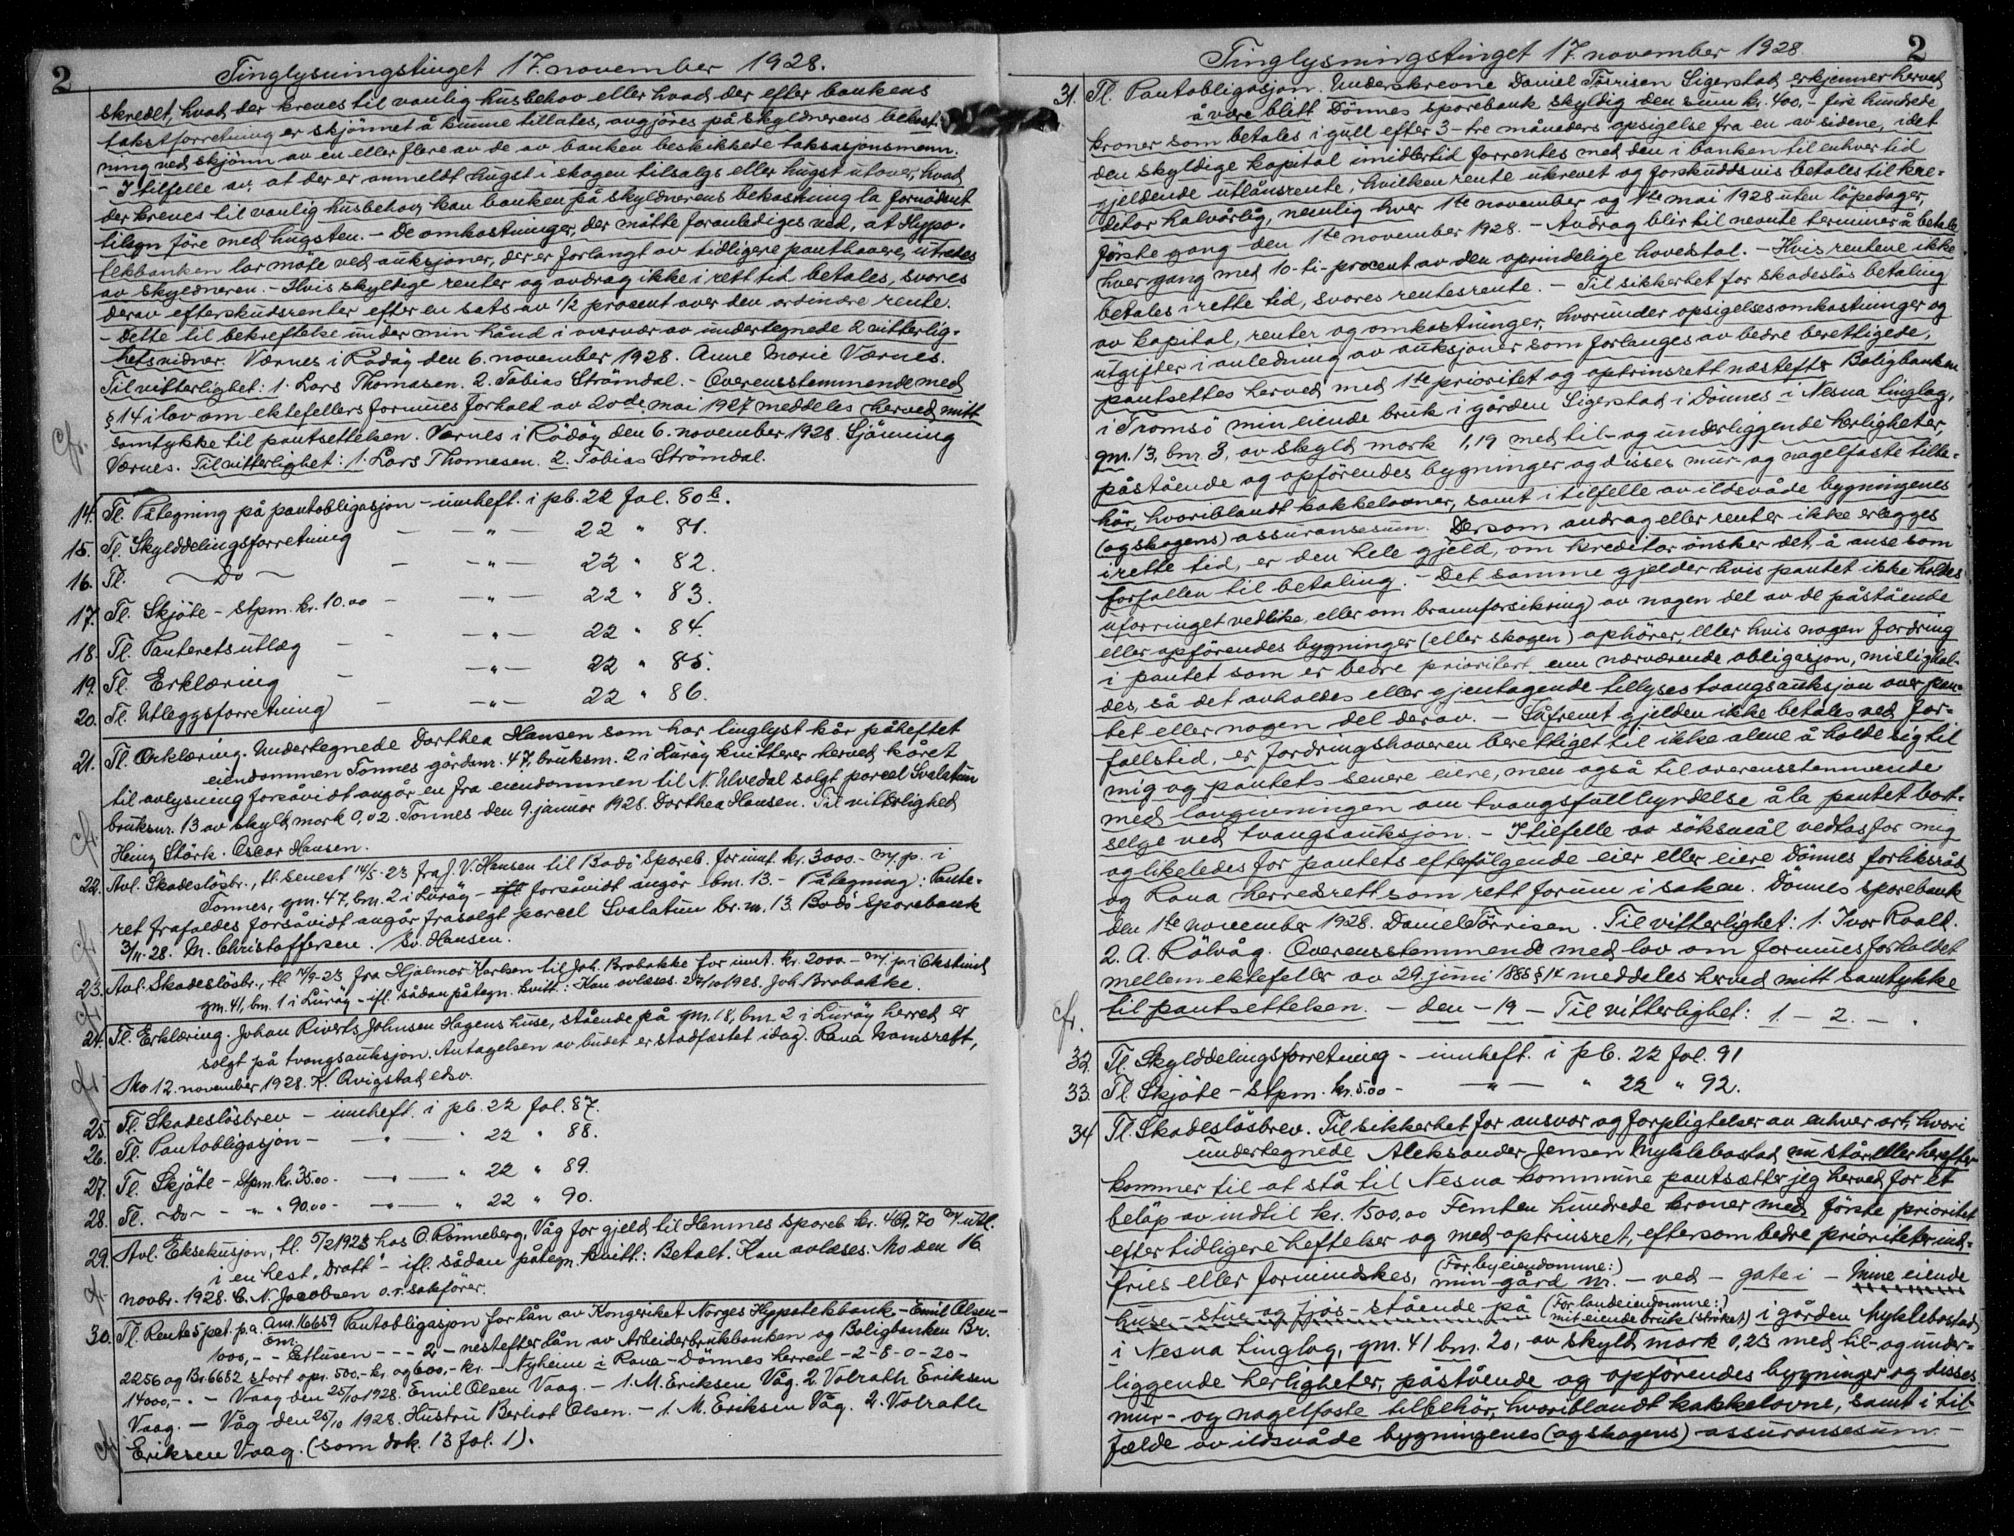 2
Tinglysningstinget 17. november 1928.
skredet, hvad der kreves til vanlig husbehov eller hvad der efter bankens
takstforretning er skjönnet å kunne tillates, avgjöres på skyldnerens bekost-
ning ved skjönn av en eller flere av de av banken beskikkede taksasjonsmenn.
- I tilfelle av, at der er anmeldt hugst i skogen tilsalgs eller hugst utover, hvad
der kreves til vanlig husbehov, kan banken på skyldnerens bekostning la fornödent
tilsyn före med hugsten. - De omkostninger, der måtte foranlediges ved, at Hypo-
tekbanken lar möte ved auksjoner, der er forlangt av tidligere panthavere, utredes
av skyldneren. - Hvis skyldige renter og avdrag ikke i rett tid betales, svares
derav efterskudsrenter efter en sats av 1/2 procent over den ordinære rente.
- Dette til bekreftelse under min hånd i overvær av undertegnede 2 vitterlig-
hetsvidner. Værnes i Rödöy den 6. november 1928. Anne Marie Værnes.
Til vitterlighet: 1. Lars Thomasen. 2. Tobias Strömdal. - Overensstemmende med
§ 14 i lov om ektefellers formues forhold av 20de mai 1927 meddeles herved mitt
samtykke til pantsettelsen. Værnes i Rödöy den 6. november 1928. Sjönning
Værnes. Til vitterlighet: 1. Lars Thomasen. 2. Tobias Strömdal.
14. Tl. Påtegning på pantobligasjon - innheft. i pb. 22 fol. 80 b.
15. Tl. Skylddelingsforretning - - " - 22 " 81.
16. Tl. - Do - - - " - 22 " 82.
17. Tl. Skjöte - Stpm. kr. 10.00 - - " - 22 " 83.
18. Tl. Panteretsutlæg - - - " - 22 " 84.
19. Tl. Erklæring - - " - 22 " 85.
20. Tl. Utleggsforretning - - " - 22 " 86.
21. Tl. Erklæring. Undertegnede Dorthea Hansen som har tinglyst kår påheftet
eiendommen Tonnes gårdsnr. 47, bruksnr. 2 i Luröy kvitterer herved kåret
til avlysning forsåvidt angår en fra eiendommen til N. Ulvedal solgt parcel Svalatun
bruksnr. 13 av skyld mark 0,02. Tonnes den 9. januar 1928. Dorthea Hansen. Til vitterlighed
Heinz Störk. Oscar Hansen.
22. Avl. Skadeslösbr., tl. senest 14/5-23 fra J. V. Hansen til Bodö Spareb. for innt. kr. 3000.- m. p. i
Tonnes, gnr. 47, bnr. 2 i Luröy - forsåvidt angår bnr. 13. - Påtegning: Pante-
ret frafaldes forsåvidt angår frasolgt parcel Svalatun br. nr. 13. Bodö Sparebank
3/11-28. M. Christoffersen. Sv. Hansen.
23. Avl. Skadeslösbr., tl 14/9-23 fra Hjalmar Karlsen til Joh. Brobakke for innt. kr. 2000.- m. p. i Okstind
gnr. 41, bnr. 1 i Luröy - ifl. sådan påtegn. kvitt.: Kan avlæses. 27/10 1928. Joh Brobakke.
24. Tl. Erklæring. Johan Riverts Johnsen Hagens huse, stående på gnr. 18, bnr. 2 i Luröy herred er
solgt på tvangsauksjon. Antagelsen av budet er stadfæstet idag. Rana Namsrett,
Mo 12. november 1928. K. Qvigstad edsv.
25. Tl. Skadeslösbrev - innheft. i pb. 22 fol. 87.
26. Tl. Pantobligasjon - - " - " 22 " 88.
27. Tl. Skjöte - Stpm. kr. 35.00 - - " - " 22 " 89.
28. Tl. - Do - - " - " 90.00 - - " - " 22 " 90.
29. Avl. Eksekusjon, tl. 5/2 1928 hos O. Rönneberg, Våg for gjeld til Hemnes Spareb kr. 469.70 m. utl.
i en hest, "Dratt" - ifl. sådan påtegn. kvitt.: Betalt. Kan avlæses. Mo den 16.
novbr. 1928. C. N. Jacobsen o. r. sakförer.
30. Tl. Rente 5 pct. p. a. Anr. 16659 Pantobligasjon for lån av Kongeriket Norges Hypotekbank. - Emil Olsen -
1000,- - Ettusen - - - 2 - nestefter lån av Arbeiderbrukbanken og Boligbanken Br.
2256 og Br 6652 stort opr. 500,- kr. og 600,- kr. - Nyheim i Rana - Dönnes herred - 2 - 8 - 0 - 20 -
14000,- . - Vaag den 25/10 1928. Emil Olsen Vaag. - 1. M. Eriksen Våg. 2. Volrath Eriksen
Vaag. - Våg den 25/10 1928. Hustru Berliot Olsen. - 1. M. Eriksen Våg. 2. Volrath
Eriksen Vaag. (som dok. 13 fol. 1).
2
Tinglysningstinget 17. november 1928.
31. Tl. Pantobligasjon. Underskrevne Daniel Törrisen Sigerstad erkjenner herved
å være blitt Dönnes sparebank skyldig den sum kr. 400,- fire hundrede
kroner som betales i gull efter 3-tre måneders opsigelse fra en av sidene, idet
den skyldige kapital imidlertid forrentes med den i banken til enhver tid
gjeldende utlånsrente, hvilken rente ukrevet og forskuddsvis betales til kre-
ditor halvårlig, nemlig hver 1te november og 1te mai 1928 uten löpedager,
förste gang den 1te november 1928. - Avdrag blir til nevnte terminer å betale
hver gang med 10-ti-procent av den oprindelige hovedstol. - Hvis rentene ikke
betales i rette tid, svares rentesrente. - Til sikkerhet for skadeslös betaling
av kapital, renter og omkostninger, hvorunder opsigelsesomkostninger og
utgifter i anledning av auksjoner som forlanges av bedre berettigede,
pantsettes herved med 1ste prioritet og optrinsrett næstefter Boligbanken
i Tromsö min eiende bruk i gården Sigerstad i Dönnes i Nesna tinglag,
gnr. 13, bnr. 3, av skyld mark 1,19 med til- og underliggende herligheter,
påstående og opförendes bygninger og disses mur- og nagelfaste tilbe-
hör, hvoriblandt kakkelovner, samt i tilfelle av ildsvåde bygningenes
(og skogens) assuransesum. Dersom avdrag eller renter ikke erlegges
i rette tid, er den hele gjeld, om kreditor önsker det, å anse som
forfallen til betaling. - Det samme gjelder hvis pantet ikke holdes
uforringet vedlike, eller om brannforsikring av nogen del av de påstående
eller opförendes bygninger (eller skogen) ophörer, eller hvis nogen fordring
i pantet som er bedre prioritert enn nærværende obligasjon, mislighol-
des, så det avholdes eller gjentagende tillyses tvangsauksjon over pan-
tet eller nogen del derav. - Såfremt gjelden ikke betales ved for-
fallstid, er fordringshaveren berettiget til ikke alene å holde sig til
mig og pantets senere eiere, men også til overensstemmende
med lovgivningen om tvangsfullbyrdelse å la pantet bort-
selge ved tvangsauksjon. - I tilfelle av söksmål vedtas for mig
og likeledes for pantets efterfölgende eier eller eiere Dönnes forliksråd
og Rana herredsrett som rett forum i saken. Dönnes Sparebank
den 1te november 1928. Daniel Törrisen. Til vitterlighet: 1. Ivar Roald.
2. A. Rölvåg. Overensstemmende med lov om formuesforholdet
mellem ektefeller av 29. juni 1888 § 14 meddeles herved mitt samtykke
til pantsettelsen. - den - 19 - Til vitterlighet: 1. - 2. - .
32. Tl. Skylddelingsforretning - innheft. i pb. 22 fol. 91
33. Tl. Skjöte - Stpm. kr. 5.00 - " - " 22 " 92.
34 Tl. Skadeslösbrev. Til sikkerhet for ansvar og forpligtelser av enhver art, hvori
undertegnede Aleksander Jensen Myklebostad nu står eller herefter
kommer til at stå til Nesna kommune pantsætter jeg herved for et
beløp av indtil kr. 1500,00 Femten hundrede kroner med förste prioritet
efter tidligere heftelser og med optrinsret, eftersom bedre prioriteter ind-
fries eller formindskes, (For byeiendomme:) min gård nr. - ved - gate i - Mine eiende
huse - stue og fjös - stående på (For landeiendomme:) mit eiende bruk (strøket) i gården Myklebostad
i Nesna tinglag, gnr. 41 bnr. 20, av skyld mark 0,23 med til- og under-
liggende herligheter, påstående og opförendes bygninger og disses
mur- og nagelfaste tilbehör, hvoriblandt kakkelovne, samt i til-
fælde av ildsvåde bygningenes (og skogens) assuransesum -